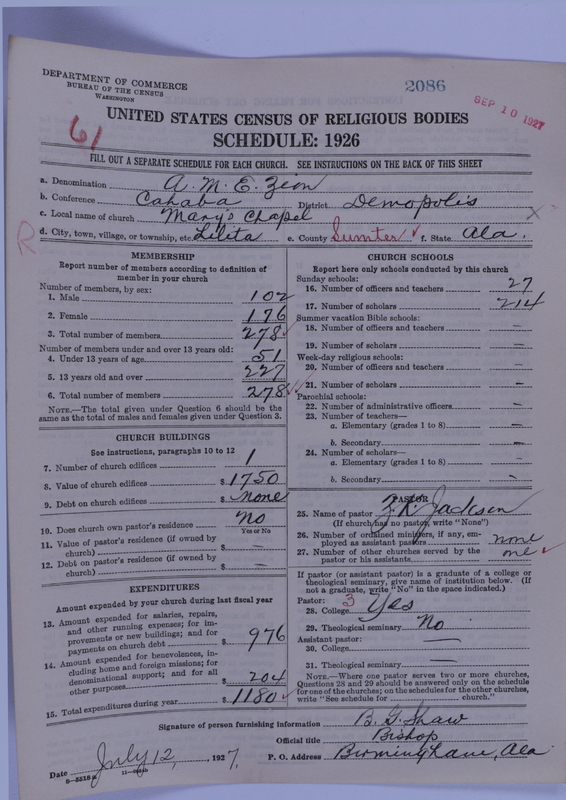 DEPARTMENT OF COMMERCE
BUREAU OF THE CENSUS
WASHINGTON
2086
SEP 10 1927
61
UNITED STATES CENSUS OF RELIGIOUS BODIES
SCHEDULE: 1926
FILL OUT A SEPARATE SCHEDULE FOR EACH CHURCH. SEE INSTRUCTIONS ON THE BACK OF THIS SHEET
a. Denomination A. M. E. Zion
b. Conference Cahaba District Demopolis
c. Local name of church Mary's Chapel X
R
d. City, town, village, or township, etc. Lilita e. County Sumter ✓ f. State Ala.
MEMBERSHIP
Report number of members according to definition of
member in your church
Number of members, by sex:
1. Male 102
2. Female 176
3. Total number of members 278 ✓
Number of members under and over 13 years old:
4. Under 13 years of age 51
5. 13 years old and over 227
6. Total number of members 278 ✓✓
NOTE.—The total given under Question 6 should be the
same as the total of males and females given under Question 3.
CHURCH BUILDINGS
See instructions, paragraphs 10 to 12
7. Number of church edifices 1
8. Value of church edifices $ 1750
9. Debt on church edifices $ None
10. Does church own pastor's residence No
Yes or No
11. Value of pastor's residence (if owned by
church) $ —
12. Debt on pastor's residence (if owned by
church) $ —
EXPENDITURES
Amount expended by your church during last fiscal year
13. Amount expended for salaries, repairs,
and other running expenses; for im-
provements or new buildings; and for
payments on church debt $ 976
14. Amount expended for benevolences, in-
cluding home and foreign missions; for
denominational support; and for all
other purposes $ 204
15. Total expenditures during year $ 1180 ✓
CHURCH SCHOOLS
Report here only schools conducted by this church
Sunday schools:
16. Number of officers and teachers 27
17. Number of scholars 214
Summer vacation Bible schools:
18. Number of officers and teachers —
19. Number of scholars —
Week-day religious schools:
20. Number of officers and teachers —
21. Number of scholars —
Parochial schools:
22. Number of administrative officers —
23. Number of teachers—
a. Elementary (grades 1 to 8) —
b. Secondary —
24. Number of scholars—
a. Elementary (grades 1 to 8) —
b. Secondary —
PASTOR
25. Name of pastor Jackson
(If church has no pastor, write "None")
26. Number of ordained ministers, if any, em-
ployed as assistant pastors none
27. Number of other churches served by the
pastor or his assistants one ✓
If pastor (or assistant pastor) is a graduate of a college or
theological seminary, give name of institution below. (If
not a graduate, write "No" in the space indicated.)
Pastor: 3
28. College Yes
29. Theological seminary No
Assistant pastor:
30. College —
31. Theological seminary —
NOTE.—Where one pastor serves two or more churches,
Questions 28 and 29 should be answered only on the schedule
for one of the churches; on the schedules for the other churches,
write "See schedule for church."
Signature of person furnishing information B. G. Shaw
Official title Bishop
Date July 12, 1927. P. O. Address Birmingham, Ala
8-5518 a